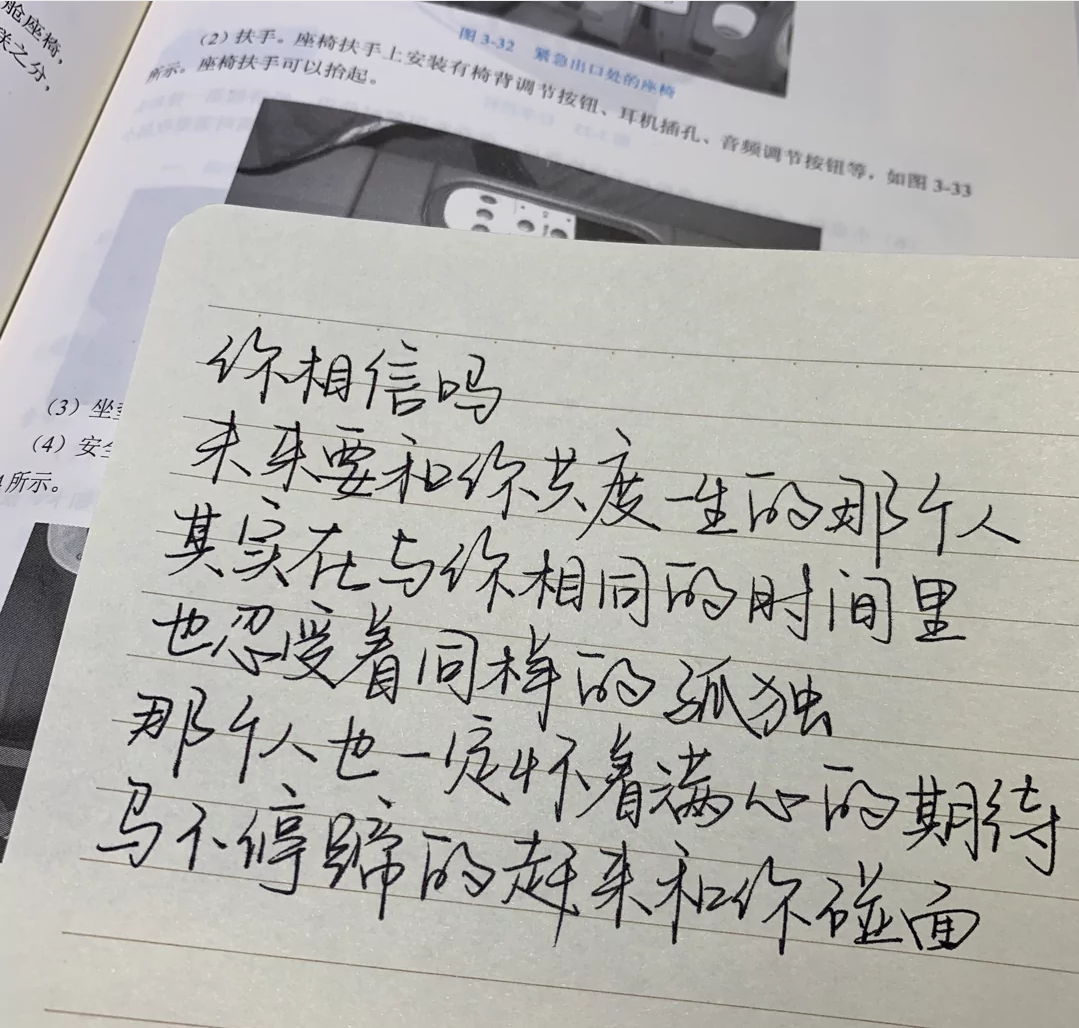 舱座椅，
之分，
图 3-32 紧急出口处的座椅
（2）扶手。座椅扶手上安装有椅背调节按钮、耳机插孔、音频调节按钮等，如图 3-33
所示。座椅扶手可以抬起。
（3）坐
（4）安全
所示。
你相信吗
未来要和你共度一生的那个人
其实在与你相同的时间里
也忍受着同样的孤独
那个人也一定怀着满心的期待
马不停蹄的赶来和你碰面